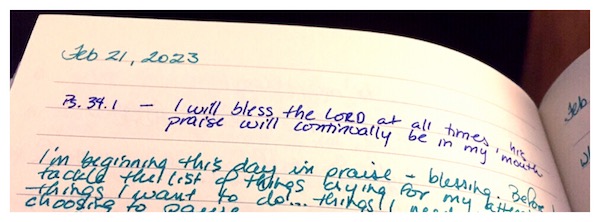 Feb 21, 2023
Ps. 34.1 - I will bless the LORD at all times, his
praise will continually be in my mouth
I'm beginning this day in praise - blessing. Before I
tackle the list of things crying for my atten
things I want to do... things I need
choosing to pause
Feb